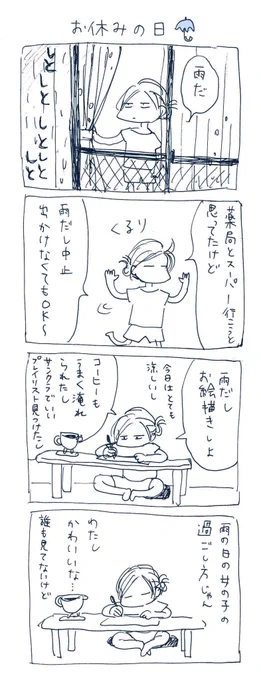 お休みの日
雨だ
しとしとしとしとしと
薬局とスーパー行こうと
思ってたけど
くるり
雨だし中止
出かけなくてもOK〜
雨だし
お絵描きしよ
今日はとても
涼しいし
コーヒーも
うまく淹れ
られたし
サンクラでいい
プレイリスト見つけたし
雨の日の女の子の
過ごし方じゃん
わたし
かわいいな…
誰も見てないけど